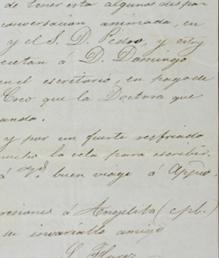 de tener esta algunas despa-
conversacion animada, en
y el S. D. Pedro, y estoy
cietan á D. Domingo
en el escritorio, en pago de
Creo que la Doctora que
ando.
y por un fuerte resfriado
mucho la cola para escribir.
á Vs. buen viage á
resiones á Angelita (c.p.b.)
su invariable amigo